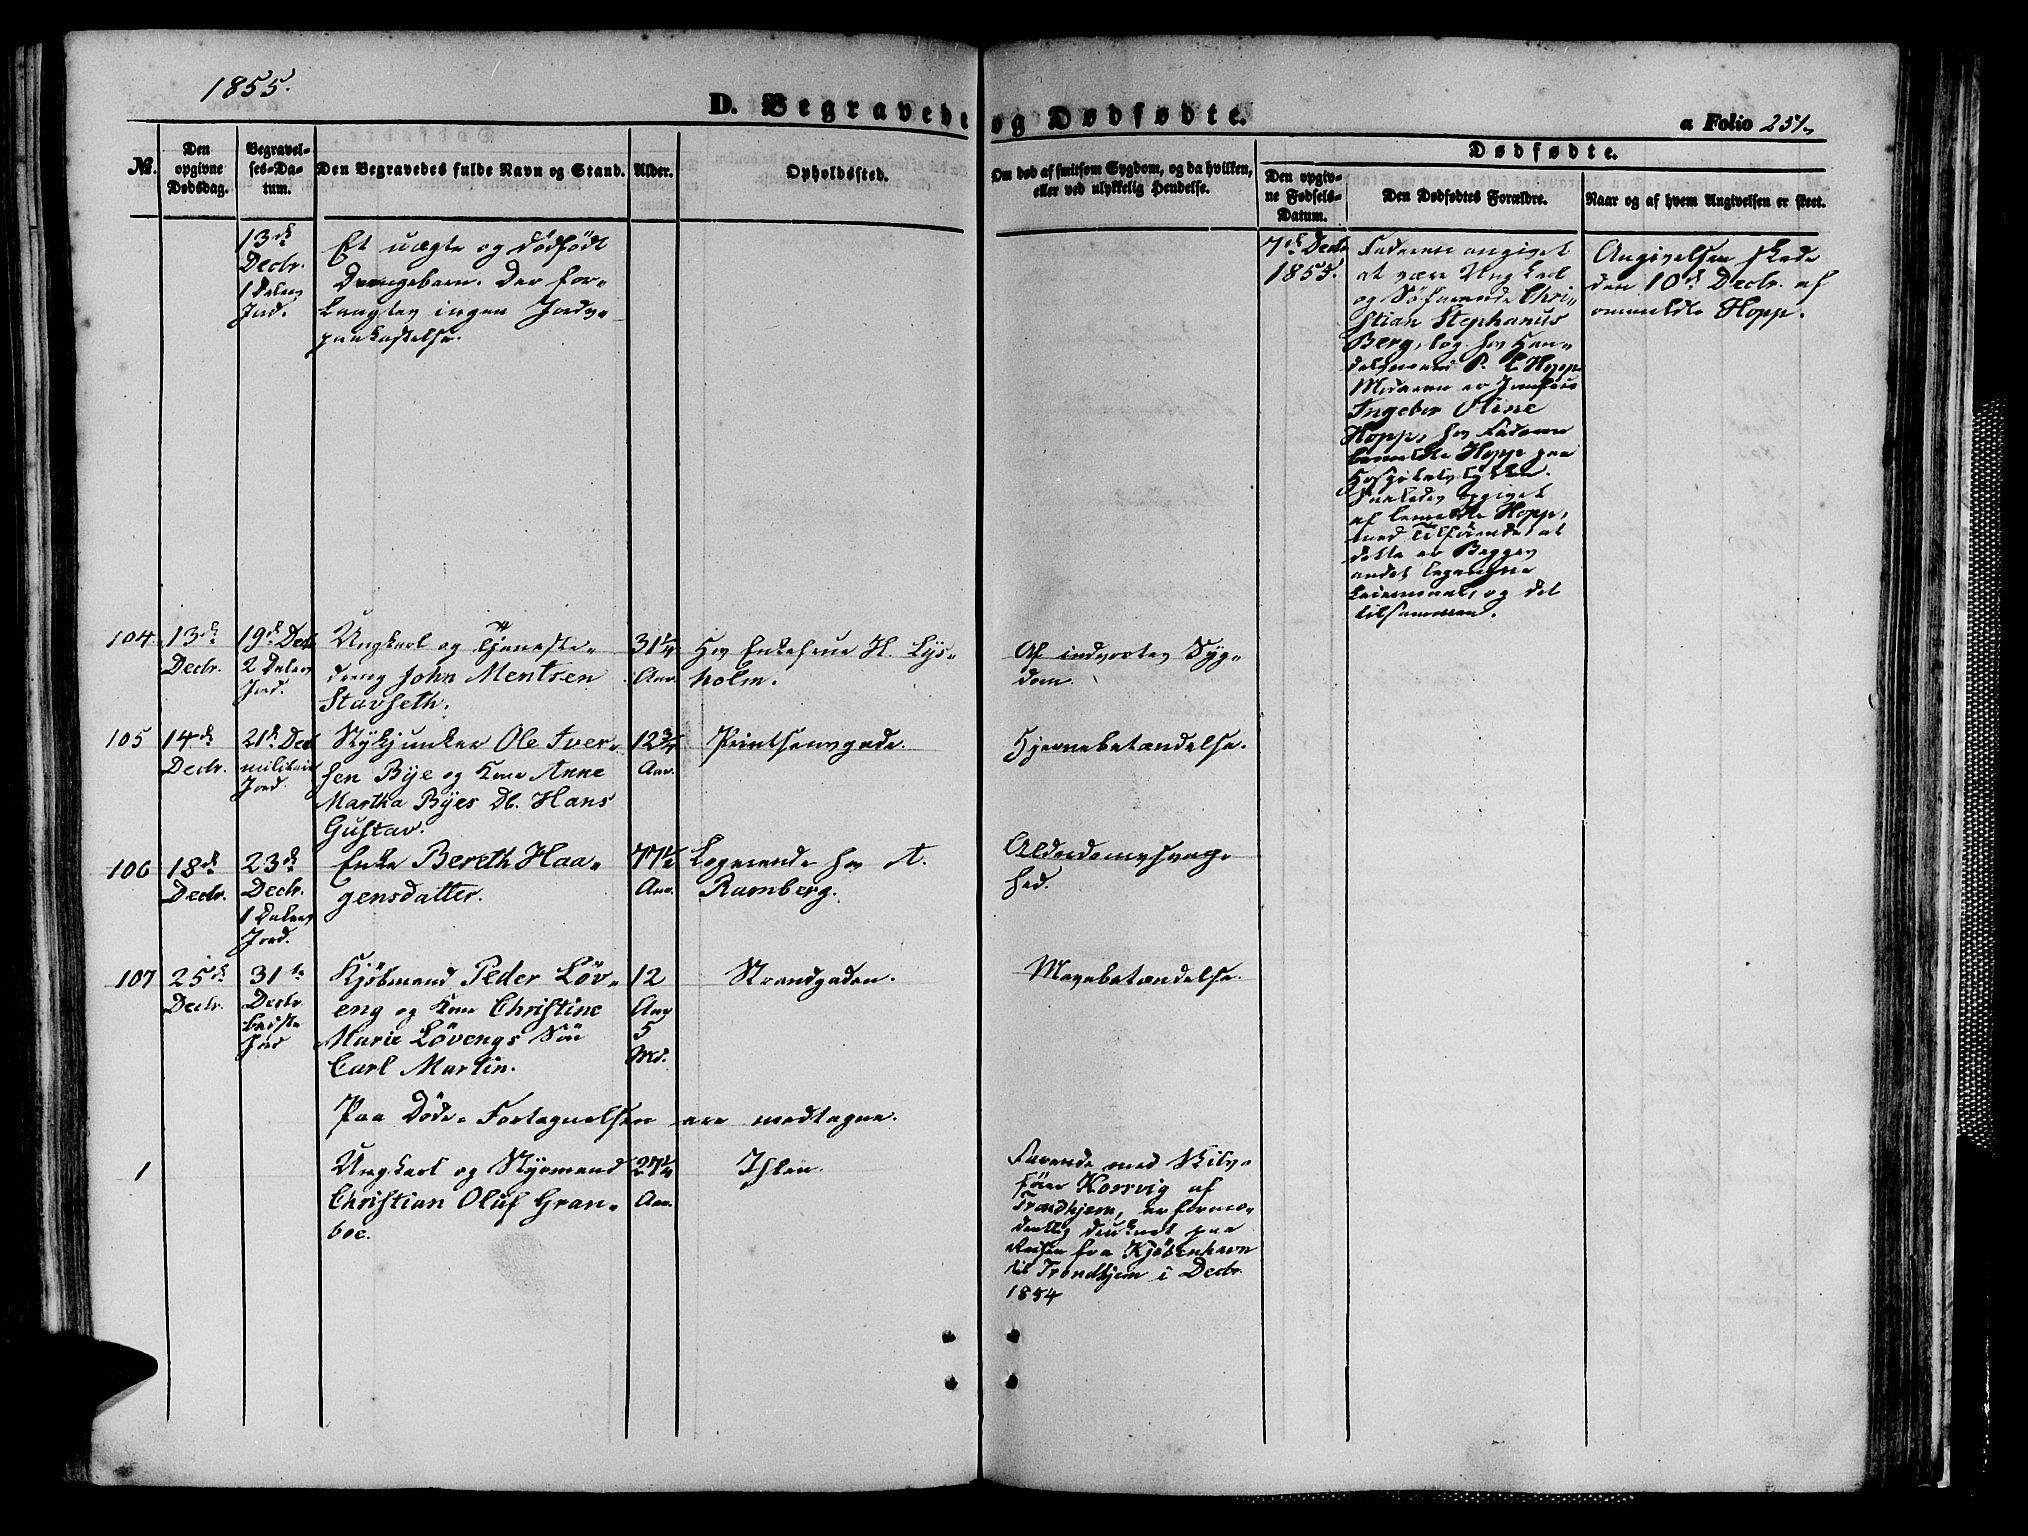 1855.
D. Begravede og Dødfødte.
a Folio 251.
No.
Den opgivne Dødsdag.
Begravelses-Datum.
Den Begravedes fulde Navn og Stand.
Alder.
Opholdssted.
Om død af smitsom Sygdom, og da hvilken,
eller ved ulykkelig Hendelse.
Dødfødte.
Den opgivne Fødsels-Datum.
Den Dødfødtes Forældre.
Naar og af hvem Angivelsen er skeet.
13de
Decbr.
1 Dalers
Jord.
Et uægte og dödfödt
Drengebarn. Der for-
langtes ingen Jords-
paakastelse.
7de Decbr
1855.
Faderen angivet
at være Ungkarl
og Söfarende Chri-
stian Stephanus
Berg, log. hos Han-
delsmand P. L. Hopp
Moderen er
Ingebor Oline
Hopp, hos Faderen
bemeldte Hopp paa
af bemeldte Hopp,
med Tilföiende at
dette er Begges
andet
Leiermaal, og det
tilsammen.
Angivelsen skede
den 10de Decbr. af
ommeldte Hopp.
104
13de
Decbr.
19de Decbr
2 Dalers
Jord.
Ungkarl og Tjeneste-
dreng John Mentsen
Stavseth.
31 1/4
Aar.
Hos Enkefrue H. Lys-
holm.
Af indvortes Syg-
dom.
105
14de
Decbr.
21de Decb
militair
Jord.
Stykjunker Ole Iver-
sen Bye og Kone Anne
Martha Byes Db. Hans
Gustav.
12 3/4
Aar.
Printsensgade.
Hjernebetændelse.
106
18de
Decbr.
23de
Decbr.
1 Dalers
Jord.
Enke Bereth Haa-
gensdatter.
77 1/2
Aar.
Logerende hos A.
Ramberg.
Alderdomssvag-
hed.
107
25de
Decbr.
31te
Decbr
beiste
Jord
Kjöbmand Peder Löv-
eng og Kone Christine
Marie Lövengs Sön
Carl Martin.
12
Aar
5
Md.
Strandgaden.
Mavebetændelse.
Paa Döde-Fortegnelsen ere medtagne.
1
Ungkarl og Styrmand
Christian Oluf Gran-
boe.
27 1/4
Aar.
Ihlen.
Farende med Skibs-
förer Korsvig af
Trondhjem, er formo-
dentlig druknet paa
Reisen fra Kjöbenhavn
til Trondhjem i Decbr
1854